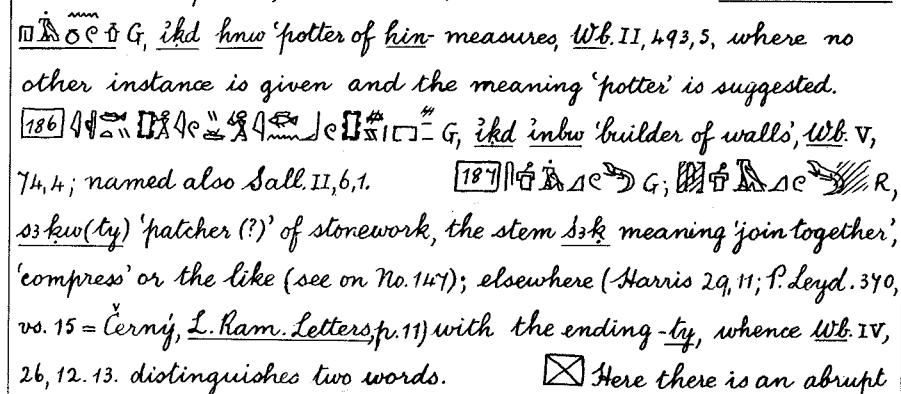 G, ı͗ḳd hnw ‘potter of hin-measures, Wb. II, 493,5, where no
other instance is given and the meaning ‘potter’ is suggested.
186 G, ı͗ḳd ı͗nbw ‘builder of walls’, Wb. V,
74,4; named also Sall. II, 6,1. 187 G; R,
sꜣḳw(ty) ‘patcher (?)’ of stonework, the stem sꜣḳ meaning ‘join together’,
‘compress’ or the like (see on No. 147); elsewhere (Harris 29, 11; P. Leyd. 370,
vs. 15 = Černý, L. Ram. Letters, p. 11) with the ending -ty, whence Wb. IV,
26, 12. 13. distinguishes two words. Here there is an abrupt